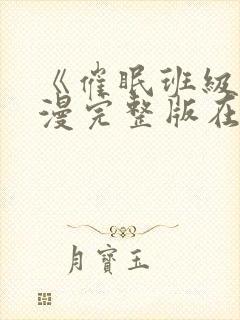 《催眠班级
漫完整版在
月寶玉